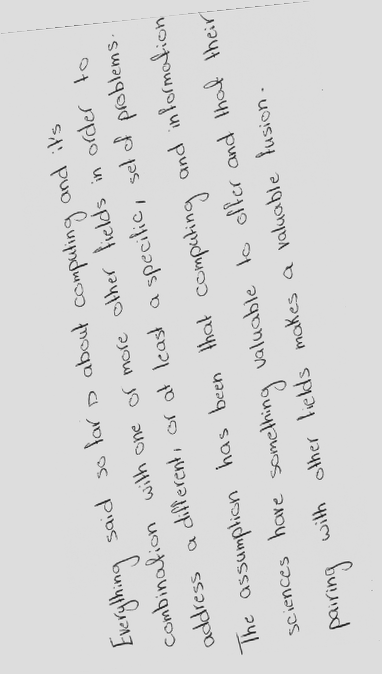 Everything said so far is about computing and it's
combination with one or more other fields in order to
address a different, or at least a specific, set of problems.
The assumption has been that computing and information
sciences have something valuable to offer and that their
pairing with other fields makes a valuable fusion.